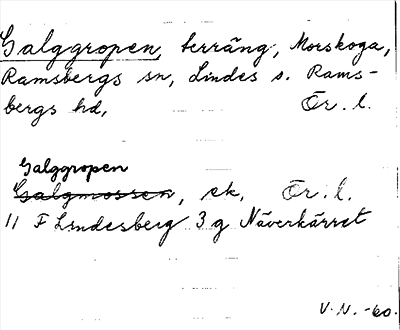 Galggropen, terräng, Morskoga,
Ramsbergs sn, Lindes o. Rams-
bergs hd, Ör. l.
Galggropen
Galgmossen, ek. Ör. l.
11 F Lindesberg 3 g Näverkärret
V. N. -60.